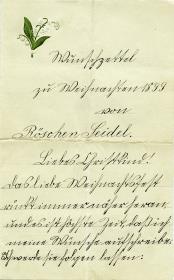 Wunschzettel
zu Weihnachten 1899
von
Röschen Seidel.
Liebes Christkind!
Das liebe Weihnachtsfest
rückt immer näher heran,
und es ist höchste Zeit, daß ich
meine Wünsche aufschreibe.
Ich werde sie folgen lassen: